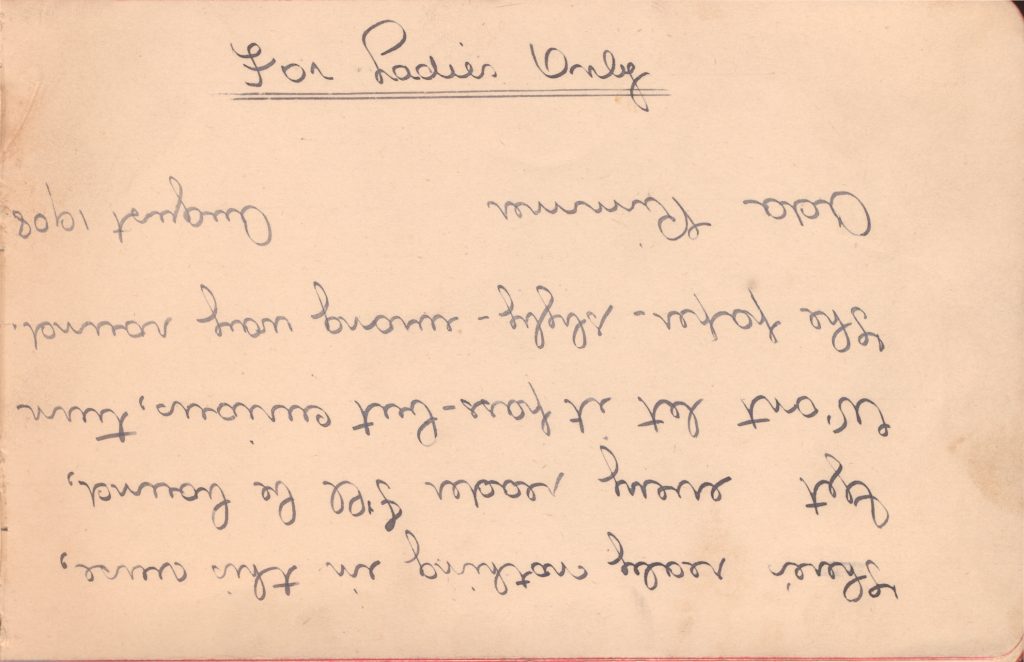 For Ladies Only
There's realy nothing in this verse,
Yet every reader I'll be bound,
W'ont let it pass - but curious, turn
The paper - slyly - wrong way round.
Ada Rimmer August 1908